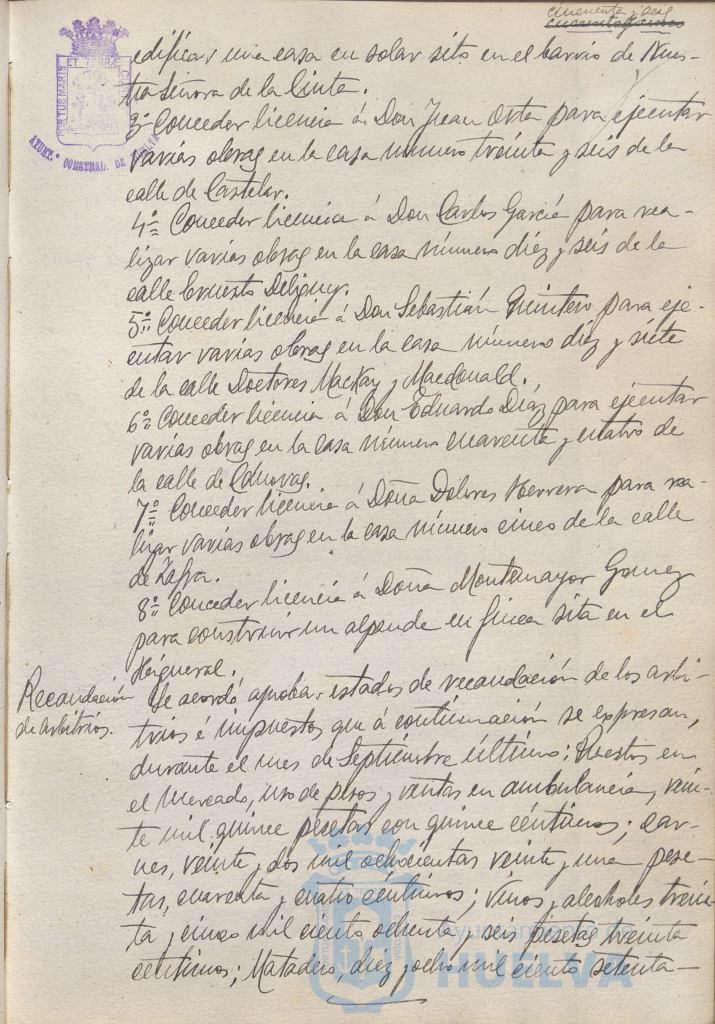 cincuenta y seis
edificar una casa en solar sito en el barrio de Nues-
tra Señora de la Cinta.
3º Conceder licencia á Don Juan Orta para ejecutar
varias obras en la casa número treinta y seis de la
calle de Castelar.
4º Conceder licencia á Don Carlos García para rea-
lizar varias obras en la casa número diez y seis de la
calle Ernesto Deligny.
5º Conceder licencia á Don Sebastián Quintero para eje-
cutar varias obras en la casa número diez y siete
de la calle Doctores Mackay y Macdonald.
6º Conceder licencia á Don Eduardo Díaz para ejecutar
varias obras en la casa número cuarenta y cuatro de
la calle de Cánovas.
7º Conceder licencia á Doña Dolores Herrera para rea-
lizar varias obras en la casa número cinco de la calle
de Zafra.
8º Conceder licencia á Doña Montemayor Gomez
para construir un alpende en finca sita en el
Higueral.
Recaudación
de arbitrios.
Se acordó aprobar estados de recaudación de los arbi-
trios é impuestos que á continuación se expresan,
durante el mes de Septiembre último: Puestos en
el Mercado, uso de pesos y ventas en ambulancia, vein-
te mil quince pesetas con quince céntimos; car-
nes, veinte y dos mil ochocientas veinte y una pese-
tas, cuarenta y cuatro céntimos; vinos y alcoholes trein-
ta y cinco mil ciento ochenta y seis pesetas treinta
céntimos; Matadero, diez y ocho mil ciento setenta
PORTUS MARIS ET TERRAE CUSTODIA
AYUNT.º CONSTNAL. DE HUELVA
Ayuntamiento de
HUELVA